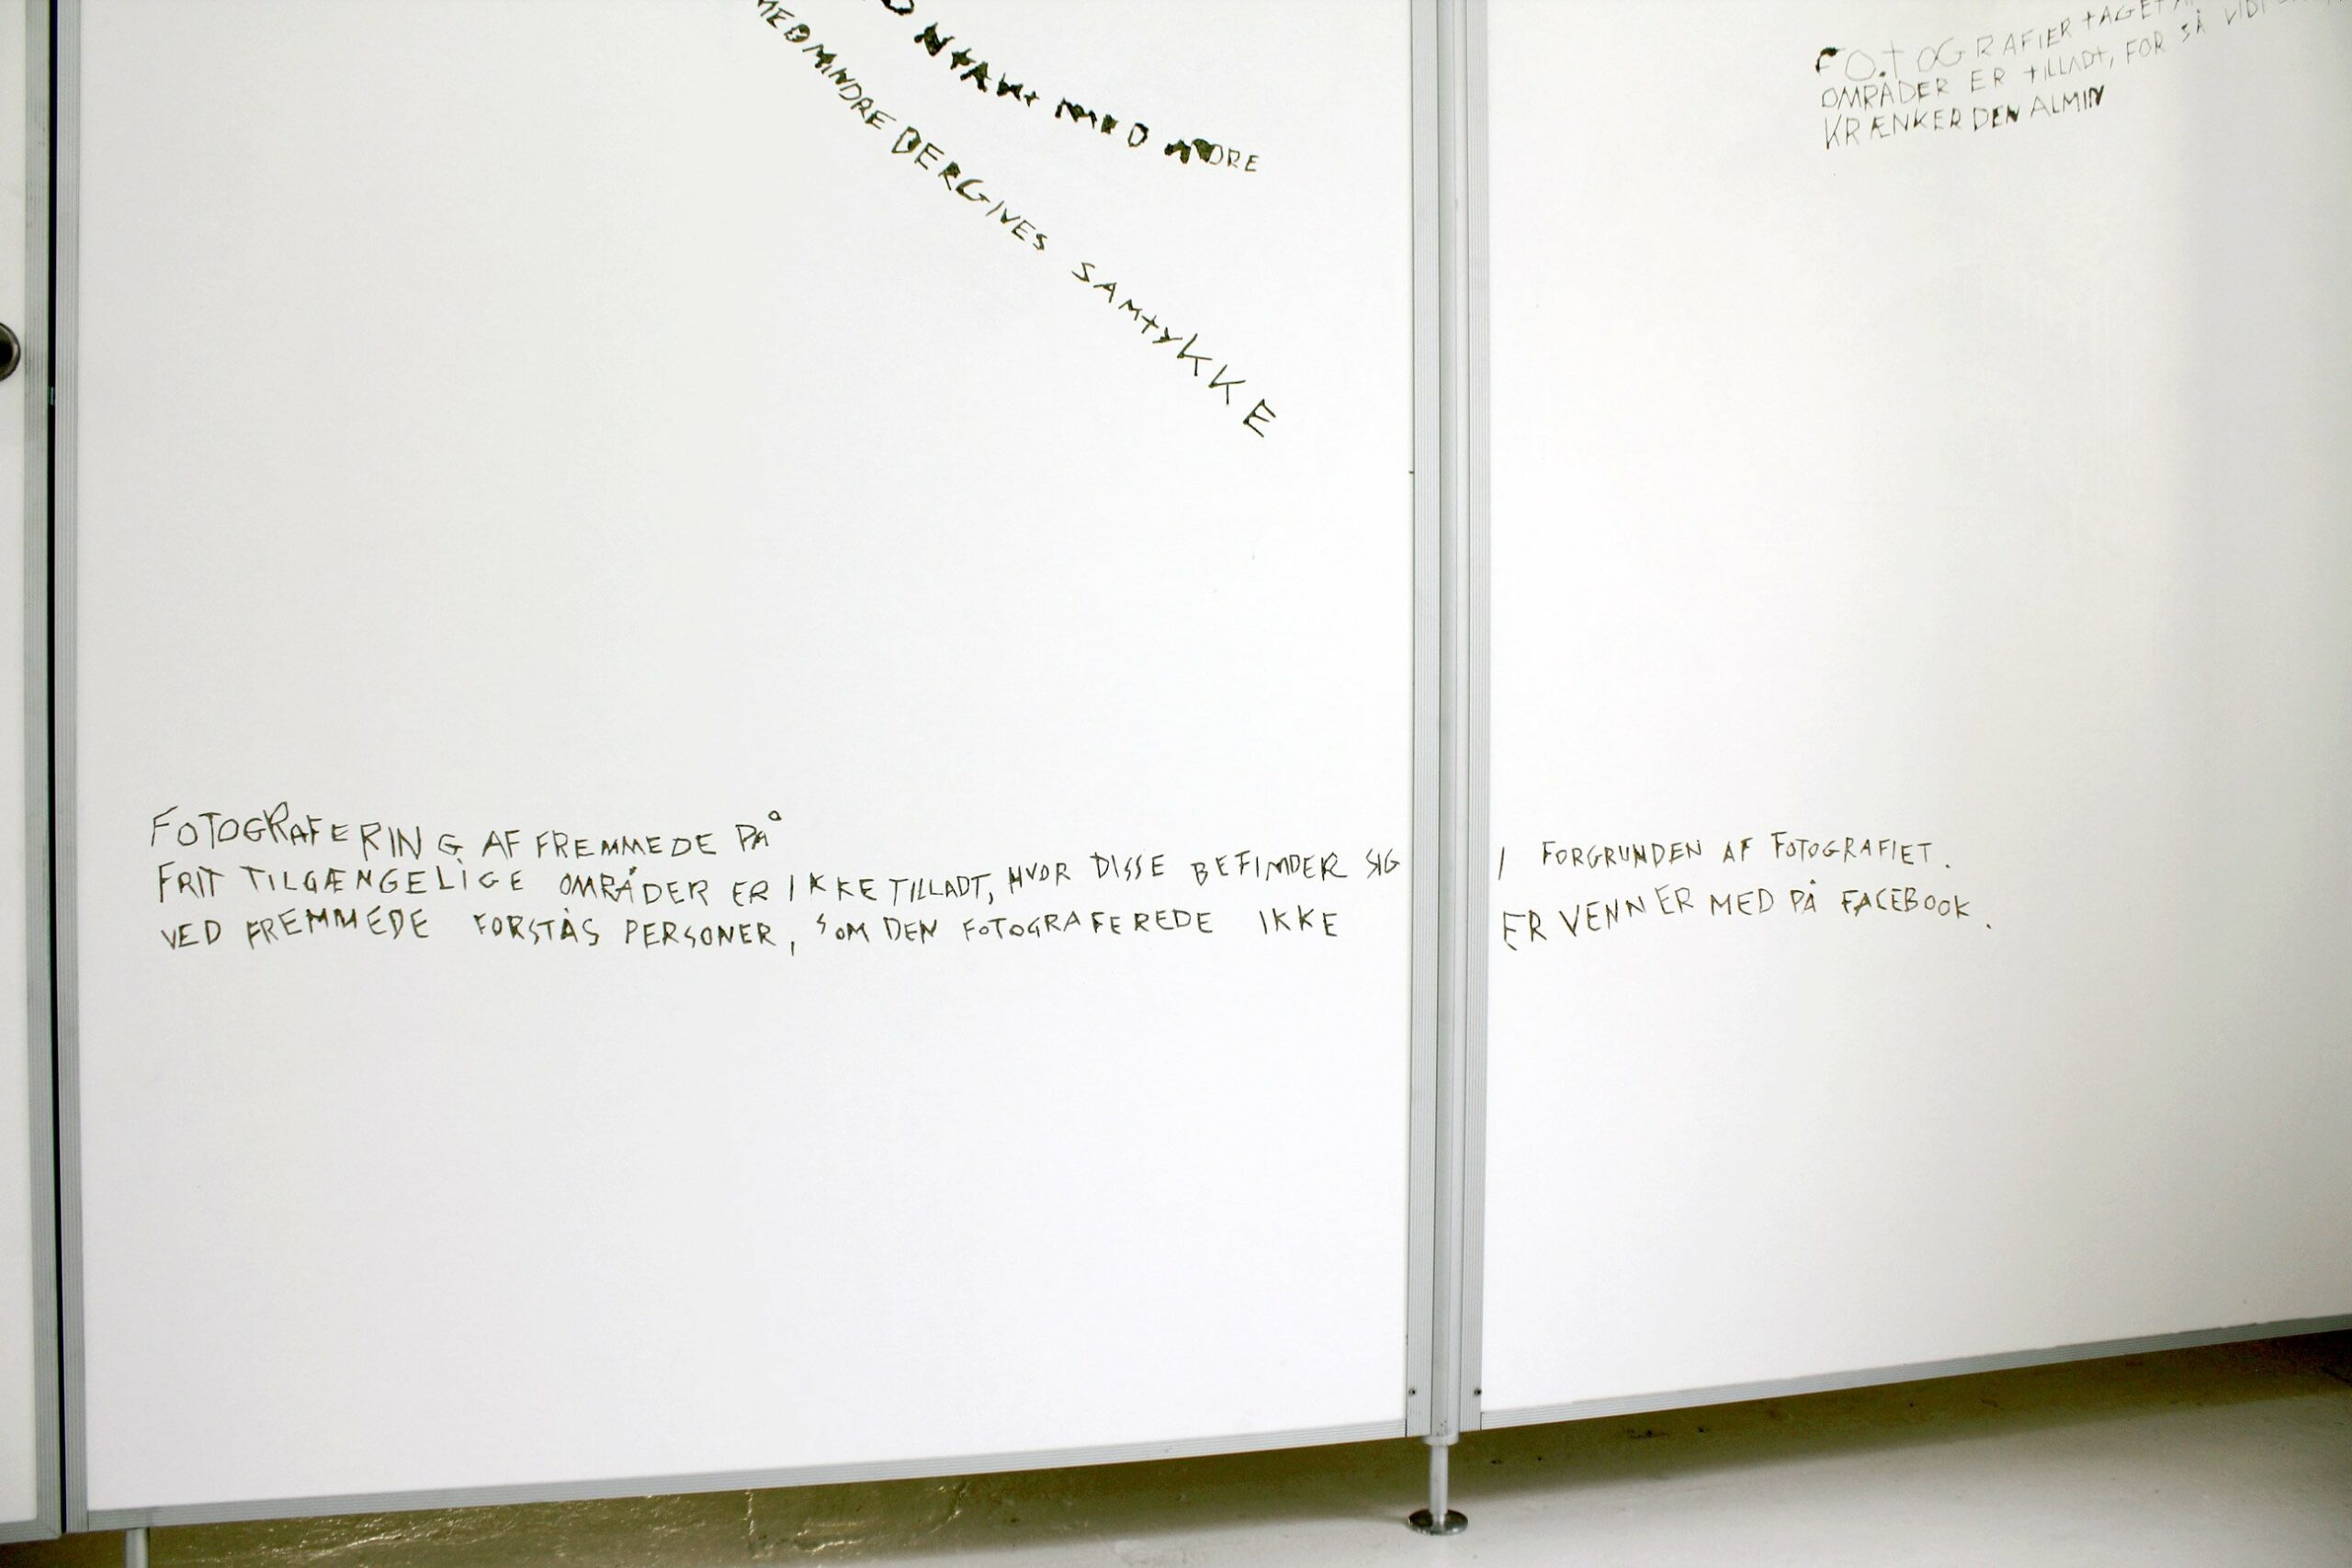 NTAKT MED ANDRE
MEDMINDRE DER GIVES SAMTYKKE
FOTOGRAFIER TAGET
OMRÅDER ER TILLADT, FOR SÅ VIDT
KRÆNKER DEN ALMIN
FOTOGRAFERING AF FREMMEDE PÅ
FRIT TILGÆNGELIGE OMRÅDER ER IKKE TILLADT, HVOR DISSE BEFINDER SIG I FORGRUNDEN AF FOTOGRAFIET.
VED FREMMEDE FORSTÅS PERSONER, SOM DEN FOTOGRAFEREDE IKKE ER VENNER MED PÅ FACEBOOK.